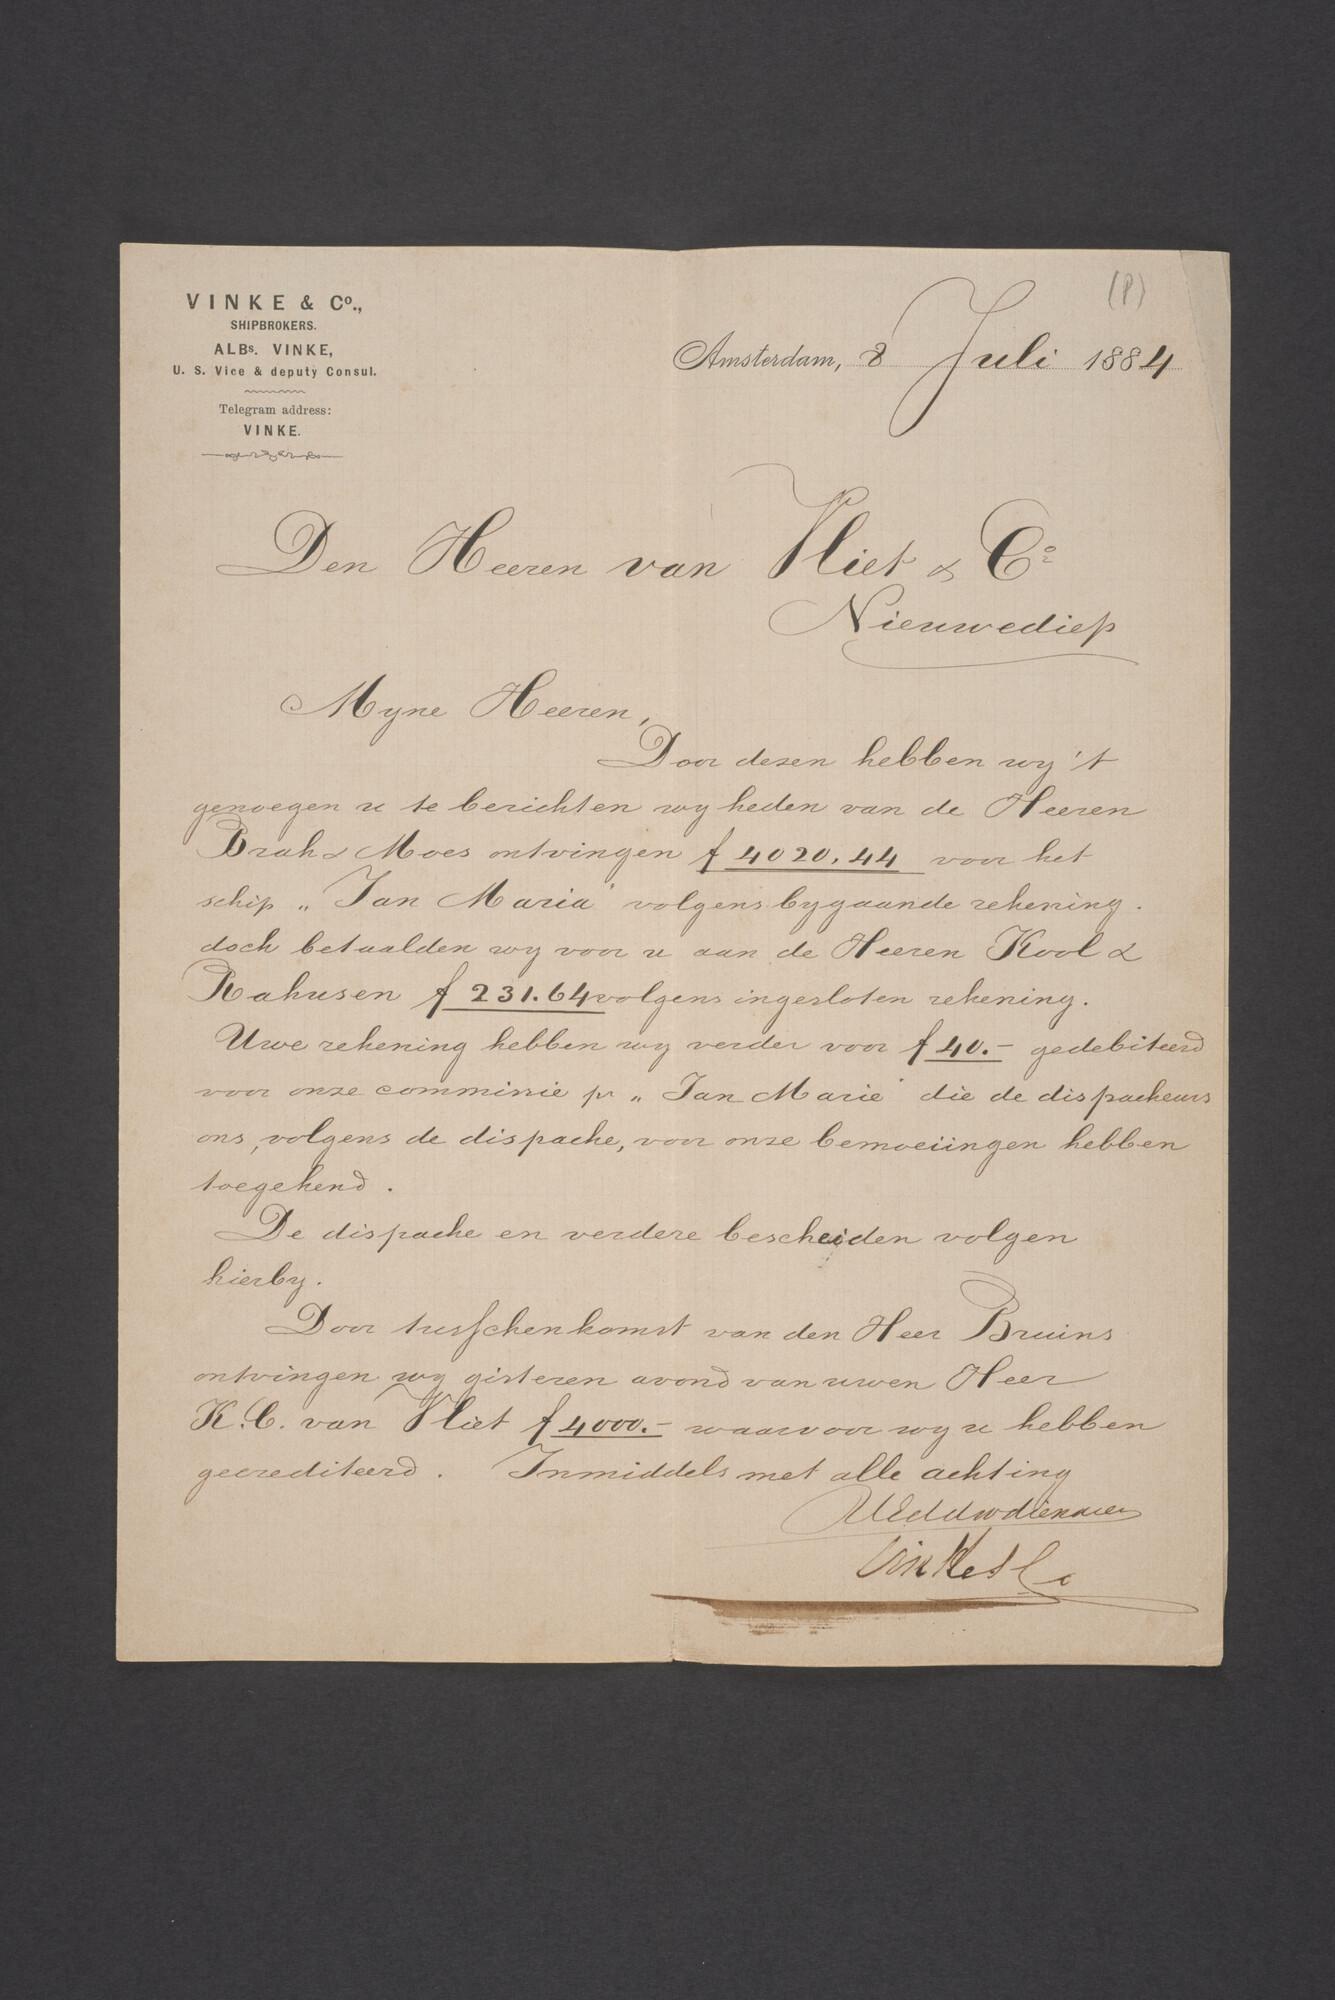 (P)
VINKE & Co.,
SHIPBROKERS.
ALBs. VINKE,
U. S. Vice & deputy Consul.
Telegram address:
VINKE.
Amsterdam, 8 Juli 1884
Den Heeren van Vliet & Co
Nieuwediep
Myne Heeren,
Door dezen hebben wy 't
genoegen u te berichten wy heden van de Heeren
Brak & Moes ontvingen f 4020.44 voor het
schip „Jan Maria" volgens bygaande rekening.
doch betaalden wy voor u aan de Heeren Kool &
Rahusen f 231.64 volgens ingesloten rekening.
Uwe rekening hebben wy verder voor f 40.- gedebiteerd
voor onze commissie pr „Jan Marie" die de dispacheurs
ons, volgens de dispache, voor onze bemoeiingen hebben
toegekend.
De dispache en verdere bescheiden volgen
hierby.
Door tusschenkomst van den Heer Bruins
ontvingen wy gisteren avond van uwen Heer
K. C. van Vliet f 4000.- waarvoor wy u hebben
gecrediteerd. Inmiddels met alle achting
UEd dw dienaren
Vinke & Co